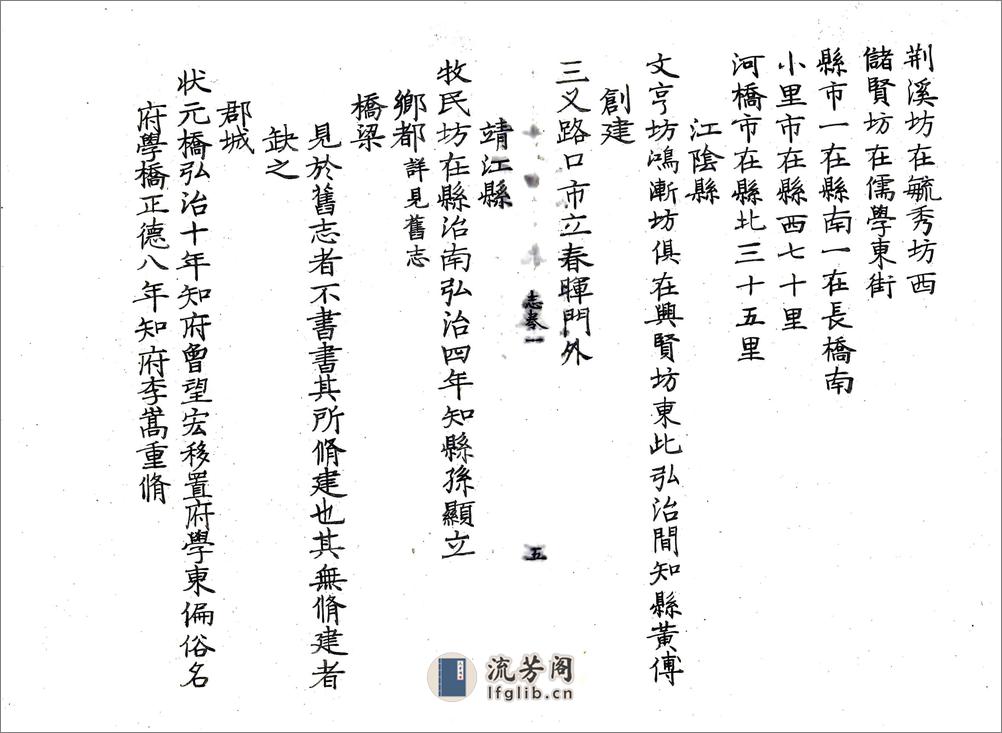 荆溪坊在毓秀坊西
儲賢坊在儒學東街
縣市一在縣南一在長橋南
小里市在縣西七十里
河橋市在縣北三十五里
江陰縣
文亨坊鴻漸坊俱在興賢坊東此弘治間知縣黃傅
創建
三义路口市立春暉門外
志卷一
五
靖江縣
牧民坊在縣治南弘治四年知縣孫顯立
鄉都詳見舊志
橋梁
見於舊志者不書書其所脩建也其無脩建者
缺之
郡城
狀元橋弘治十年知府曾望宏移置府學東偏俗名
府學橋正德八年知府李嵩重脩
流芳阁
lfglib.cn